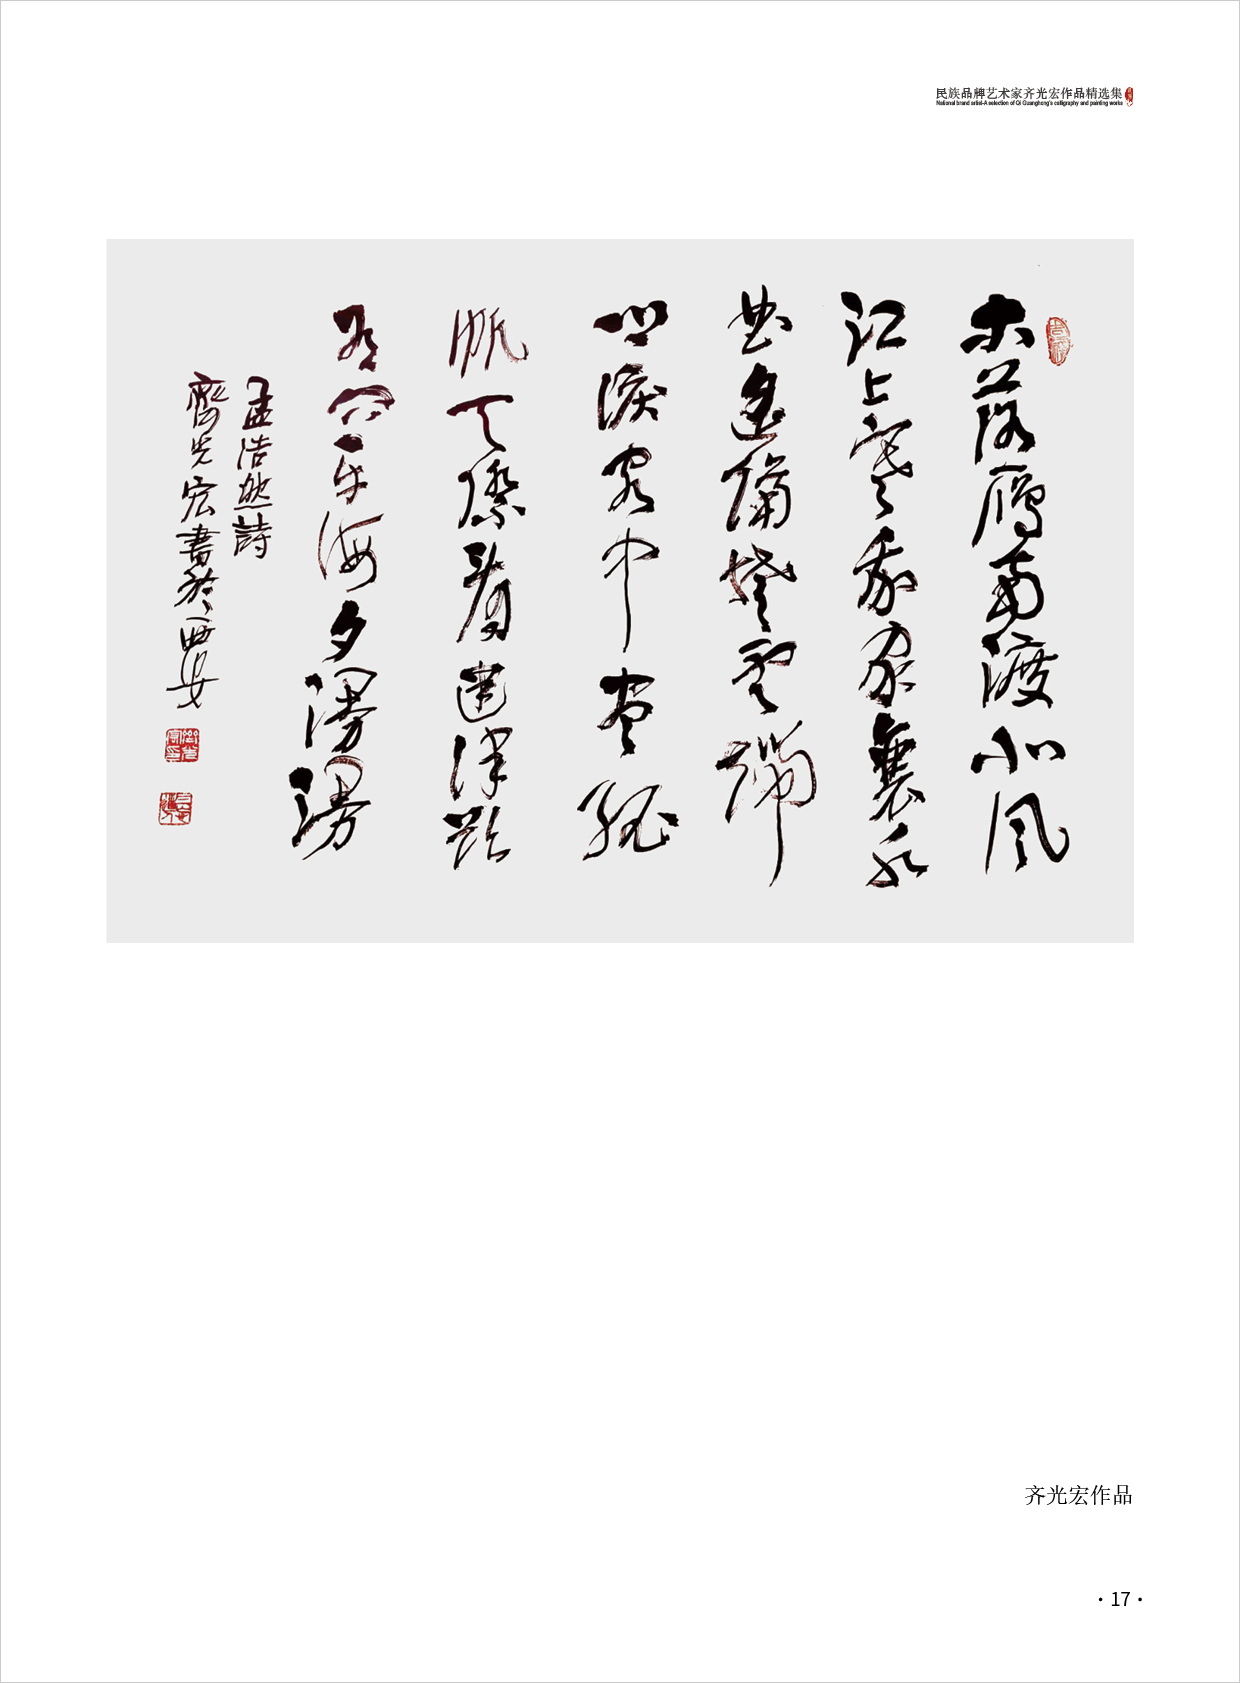 民族品牌艺术家齐光宏作品精选集
National brand artist-A selection of Qi Guanghong's calligraphy and painting works
木落鴈南渡北風
江上寒我家襄水
曲遥隔楚雲端
鄉淚客中盡孤
帆天際看迷津欲
有問平海夕漫漫
孟浩然詩
齊光宏書於西安
齐光宏作品
·17·